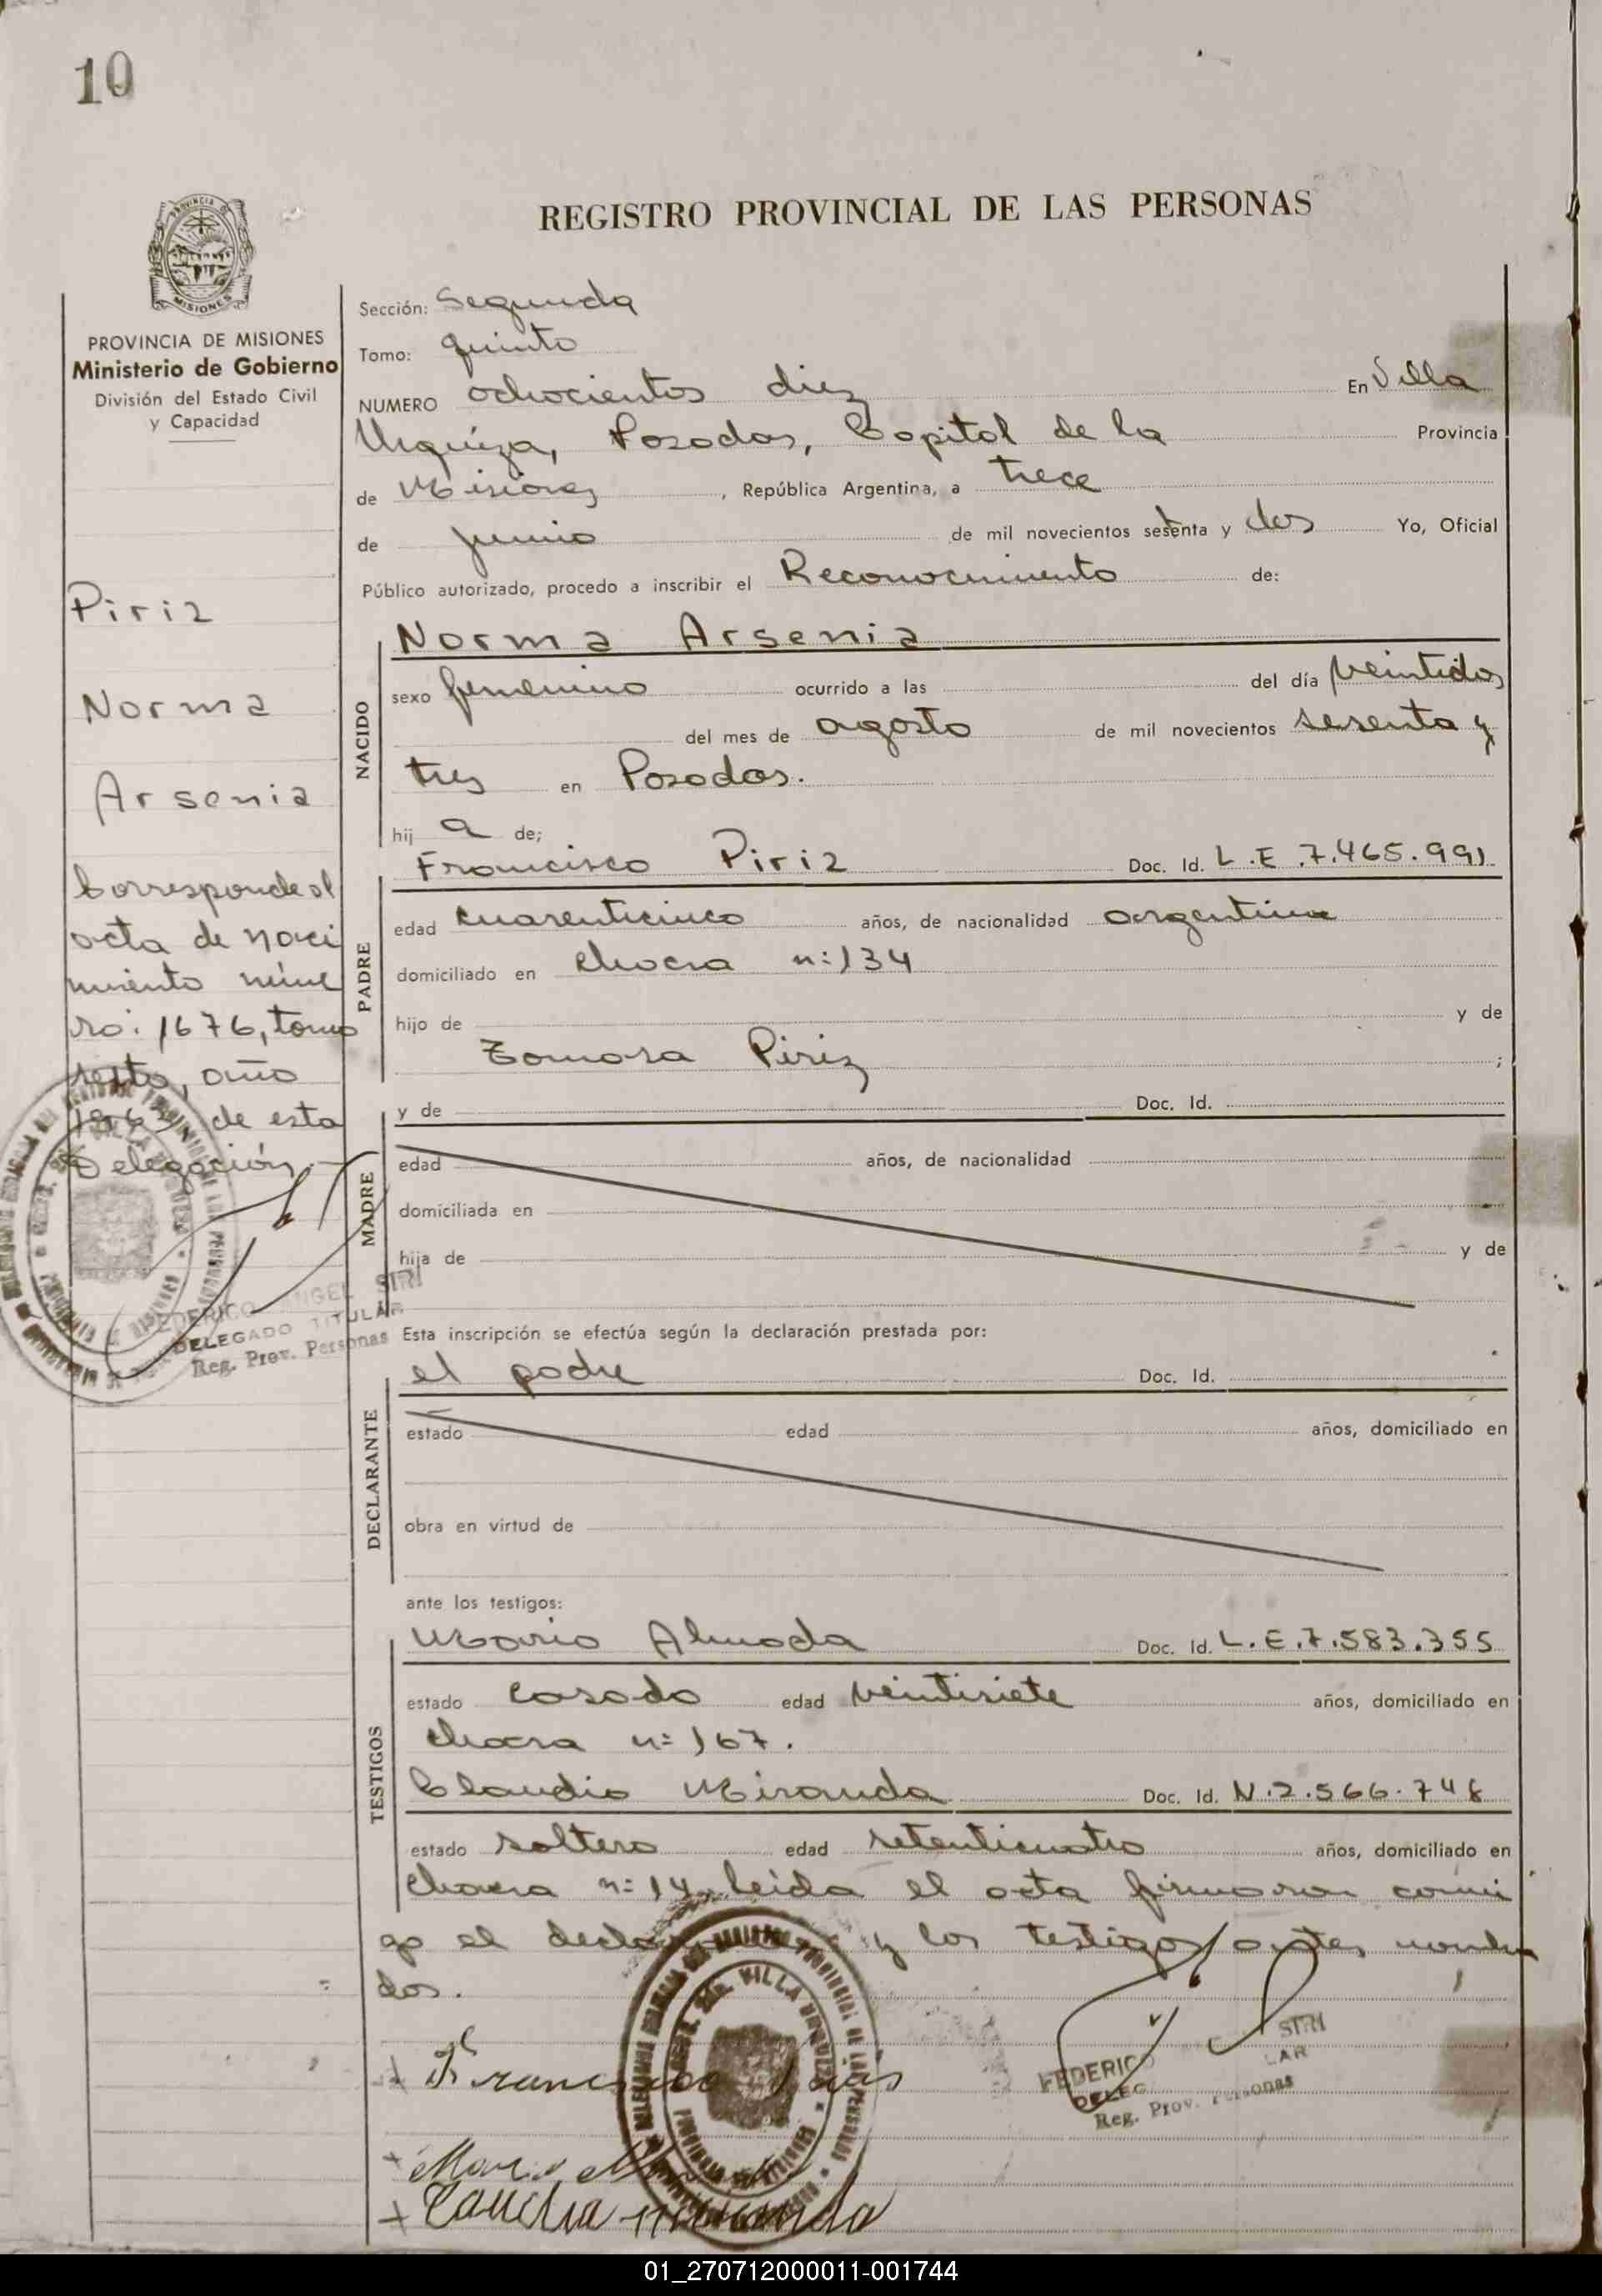 10
REGISTRO PROVINCIAL DE LAS PERSONAS
PROVINCIA DE MISIONES
Ministerio de Gobierno
División del Estado Civil
y Capacidad
Piriz
Norma
Arsenia
Corresponde al
acta de naci
miento núme
ro: 1676, tomo
sexto, año
1963 de esta
Delegación.
FEDERICO ANGEL SIRI
DELEGADO TITULAR
Reg. Prov. Personas
Sección: Segunda
Tomo: quinto
NUMERO ochocientos diez En Villa
Urquiza, Posadas, Capital de la Provincia
de Misiones, República Argentina, a trece
de junio de mil novecientos setenta y dos Yo, Oficial
Público autorizado, procedo a inscribir el Reconocimiento de:
NACIDO
Norma Arsenia
sexo femenino ocurrido a las del día veintidos
del mes de agosto de mil novecientos sesenta y
tres en Posadas.
hij a de;
PADRE
Francisco Piriz Doc. Id. L.E.7.465.991
edad cuarenticinco años, de nacionalidad argentina
domiciliado en chacra n:134
hijo de y de
Tomasa Piriz ;
MADRE
y de Doc. Id.
edad años, de nacionalidad
domiciliada en
hija de y de
Esta inscripción se efectúa según la declaración prestada por:
DECLARANTE
el padre Doc. Id.
estado edad años, domiciliado en
obra en virtud de
ante los testigos:
TESTIGOS
Mario Almada Doc. Id. L.E.7.583.355
estado casado edad veintisiete años, domiciliado en
chacra n:167.
Claudio Miranda Doc. Id. N.2.566.748
estado soltero edad setenticuatro años, domiciliado en
chacra n:14, leida el acta firmaron conmi
go el declarante y los testigos antes nombra
dos.
VILLA URQUIZA
FEDERICO SIRI
DELEG LAR
Reg. Prov. Personas
Francisco
Mario
Claudia Miranda
01_270712000011-001744